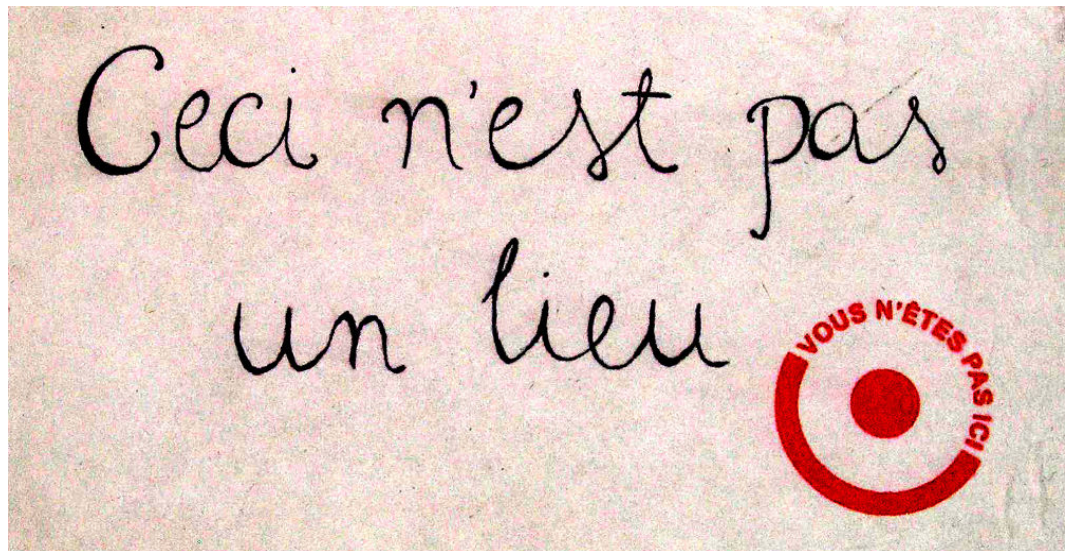 Ceci n'est pas
un lieu
VOUS N'ÊTES PAS ICI